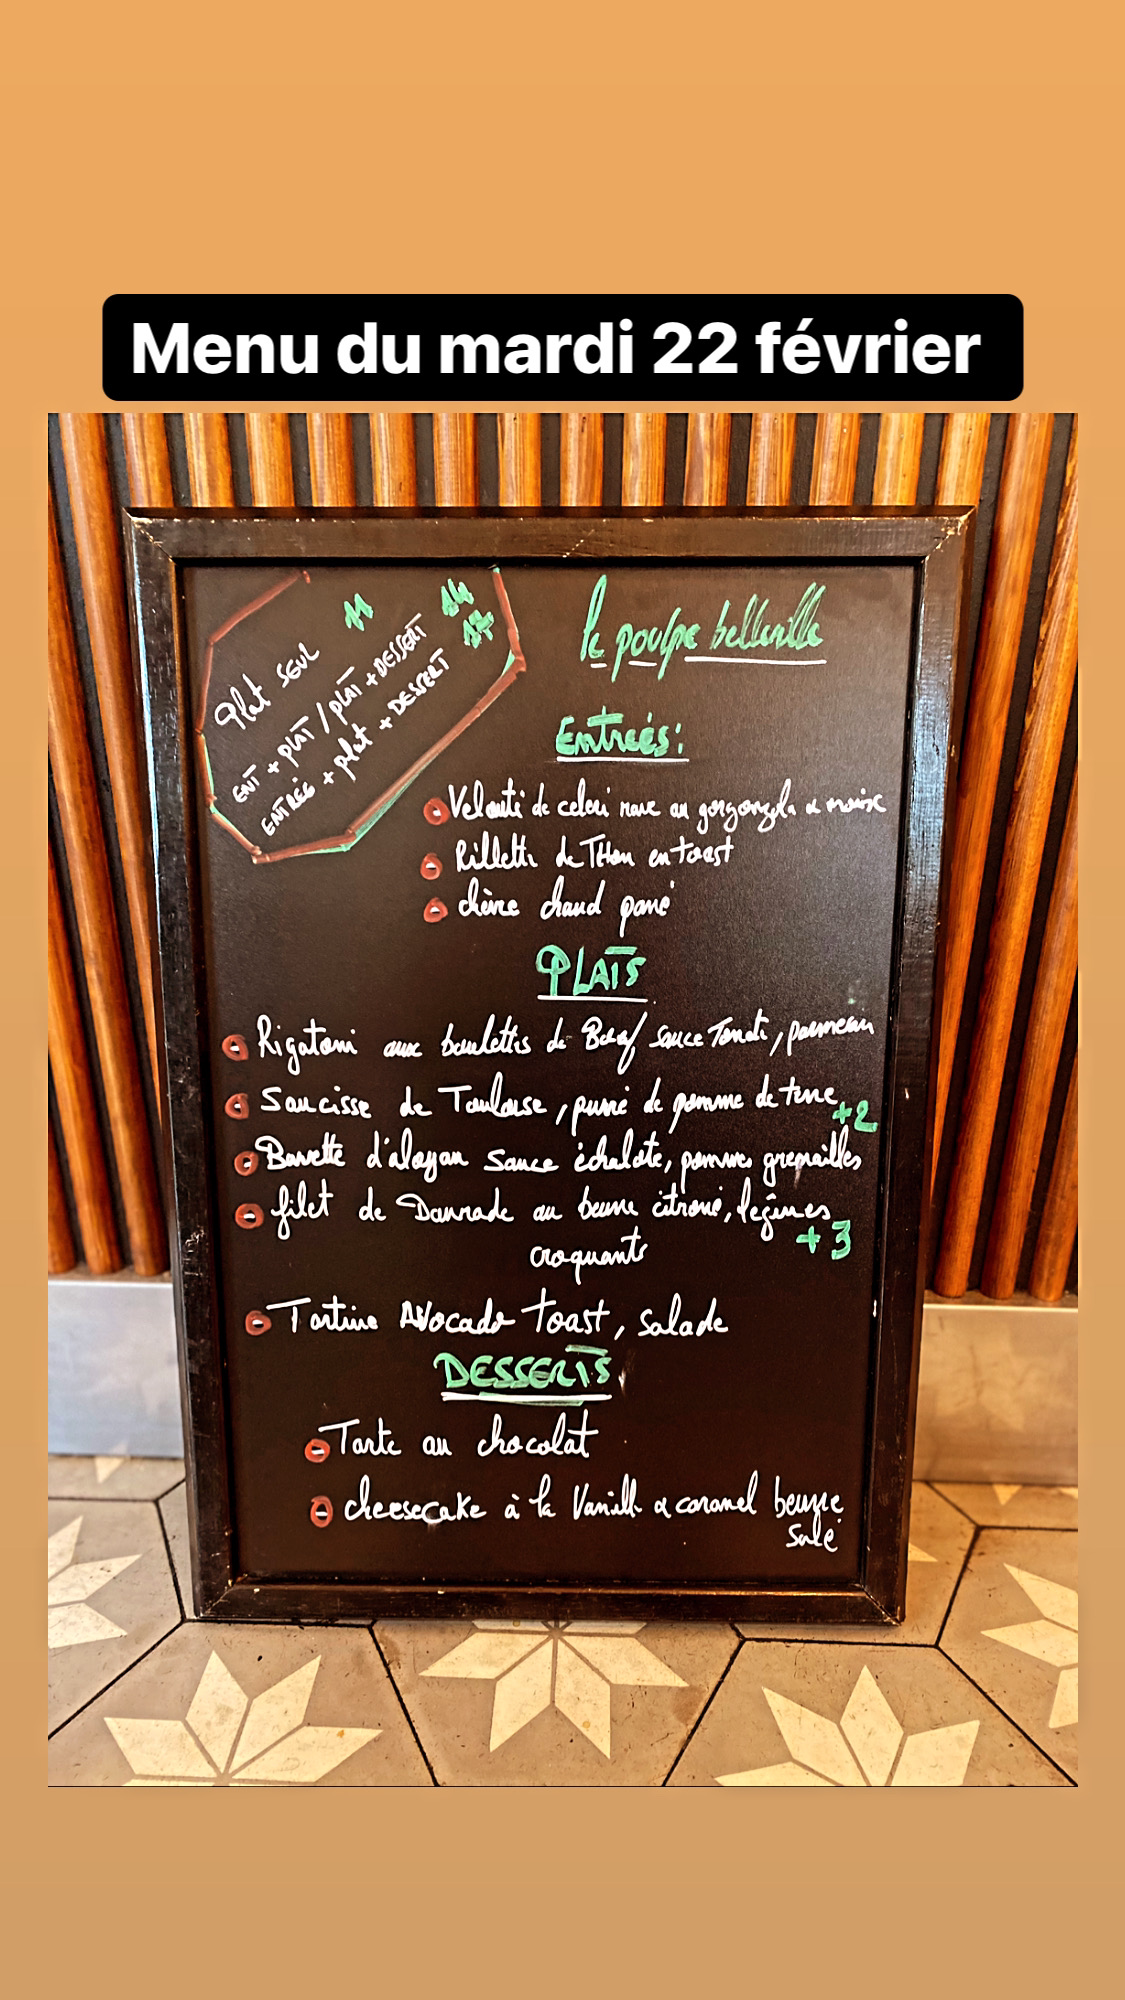 Menu du mardi 22 février
Plat seul 11
ENT + PLAT / PLAT + DESSERT 14
ENTRÉE + plat + DESSERT 17
le poulpe belleville
Entreés:
Velouté de céleri rave au gorgonzola & noix
Rillette de THon en toast
chèvre chaud pané
PLATS
Rigatoni aux boulettes de Boeuf sauce Tomate, parmesan
Saucisse de Toulouse, purée de pomme de terre
+2
Bavette d'aloyau sauce échalote, pommes grenailles
filet de Daurade au beurre citroné, legumes
+3
croquants
Tartine Avocado toast, salade
DESSERTS
Tarte au chocolat
cheesecake à la Vanille & caramel beurre
Salé